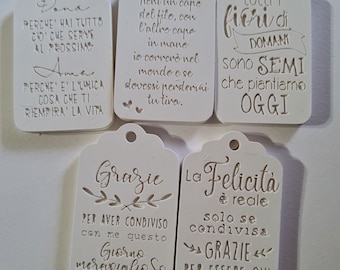 Dona
PERCHE' HAI TUTTO
CIÒ CHE SERVE
AL PROSSIMO
Ama
PERCHE' È L'UNICA
COSA CHE TI
RIEMPIRÀ LA VITA
tieni un capo
del filo, con
l'altro capo
in mano
io correrò nel
mondo e se
dovessi perdermi
tu tira.
Tutti i
fiori di
DOMANI
sono SEMI
che piantiamo
OGGI
Grazie
PER AVER CONDIVISO
con me questo
Giorno
meraviglioso
La
Felicità
è reale
solo se
condivisa
GRAZIE
PER ESSERE QUI